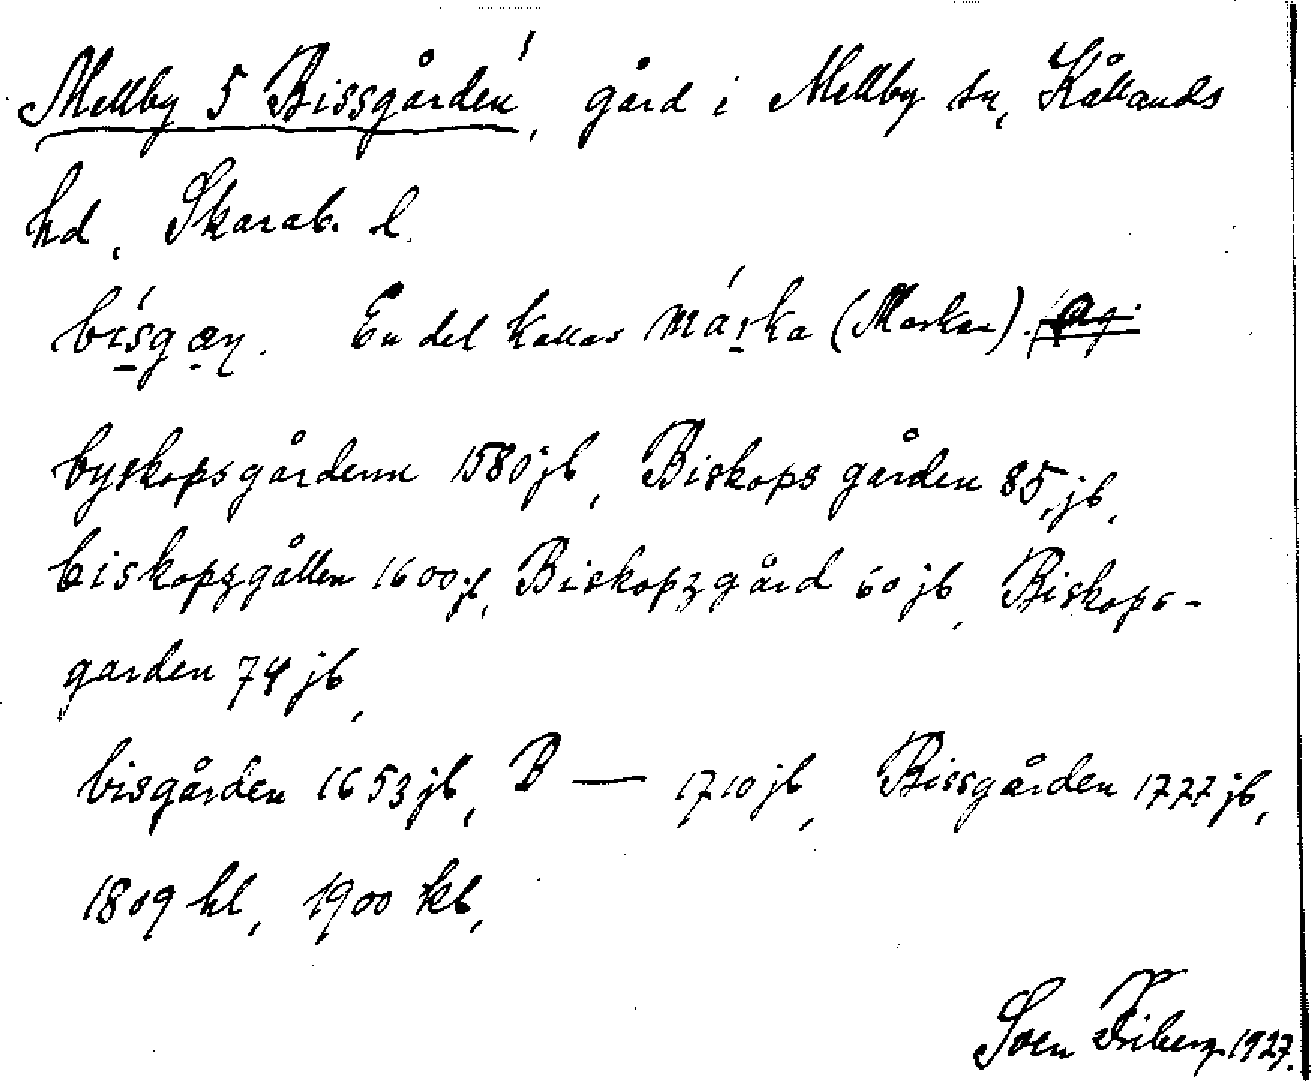 Mellby 5 Bissgården', gård i Mellby sn, Kållands
hd, Skarab. l.
bísgan. En del kallas márka (Marka).
byskopsgårdenn 1580 jb, Biskops gården 85 jb,
biskopzgållen 1600 jb, Biskopzgård 60 jb, Biskops-
garden 74 jb,
bisgården 1653 jb, B — 1710 jb, Bissgården 1777 jb,
1809 hl, 1900 kb,
Sven Friberg 1927.